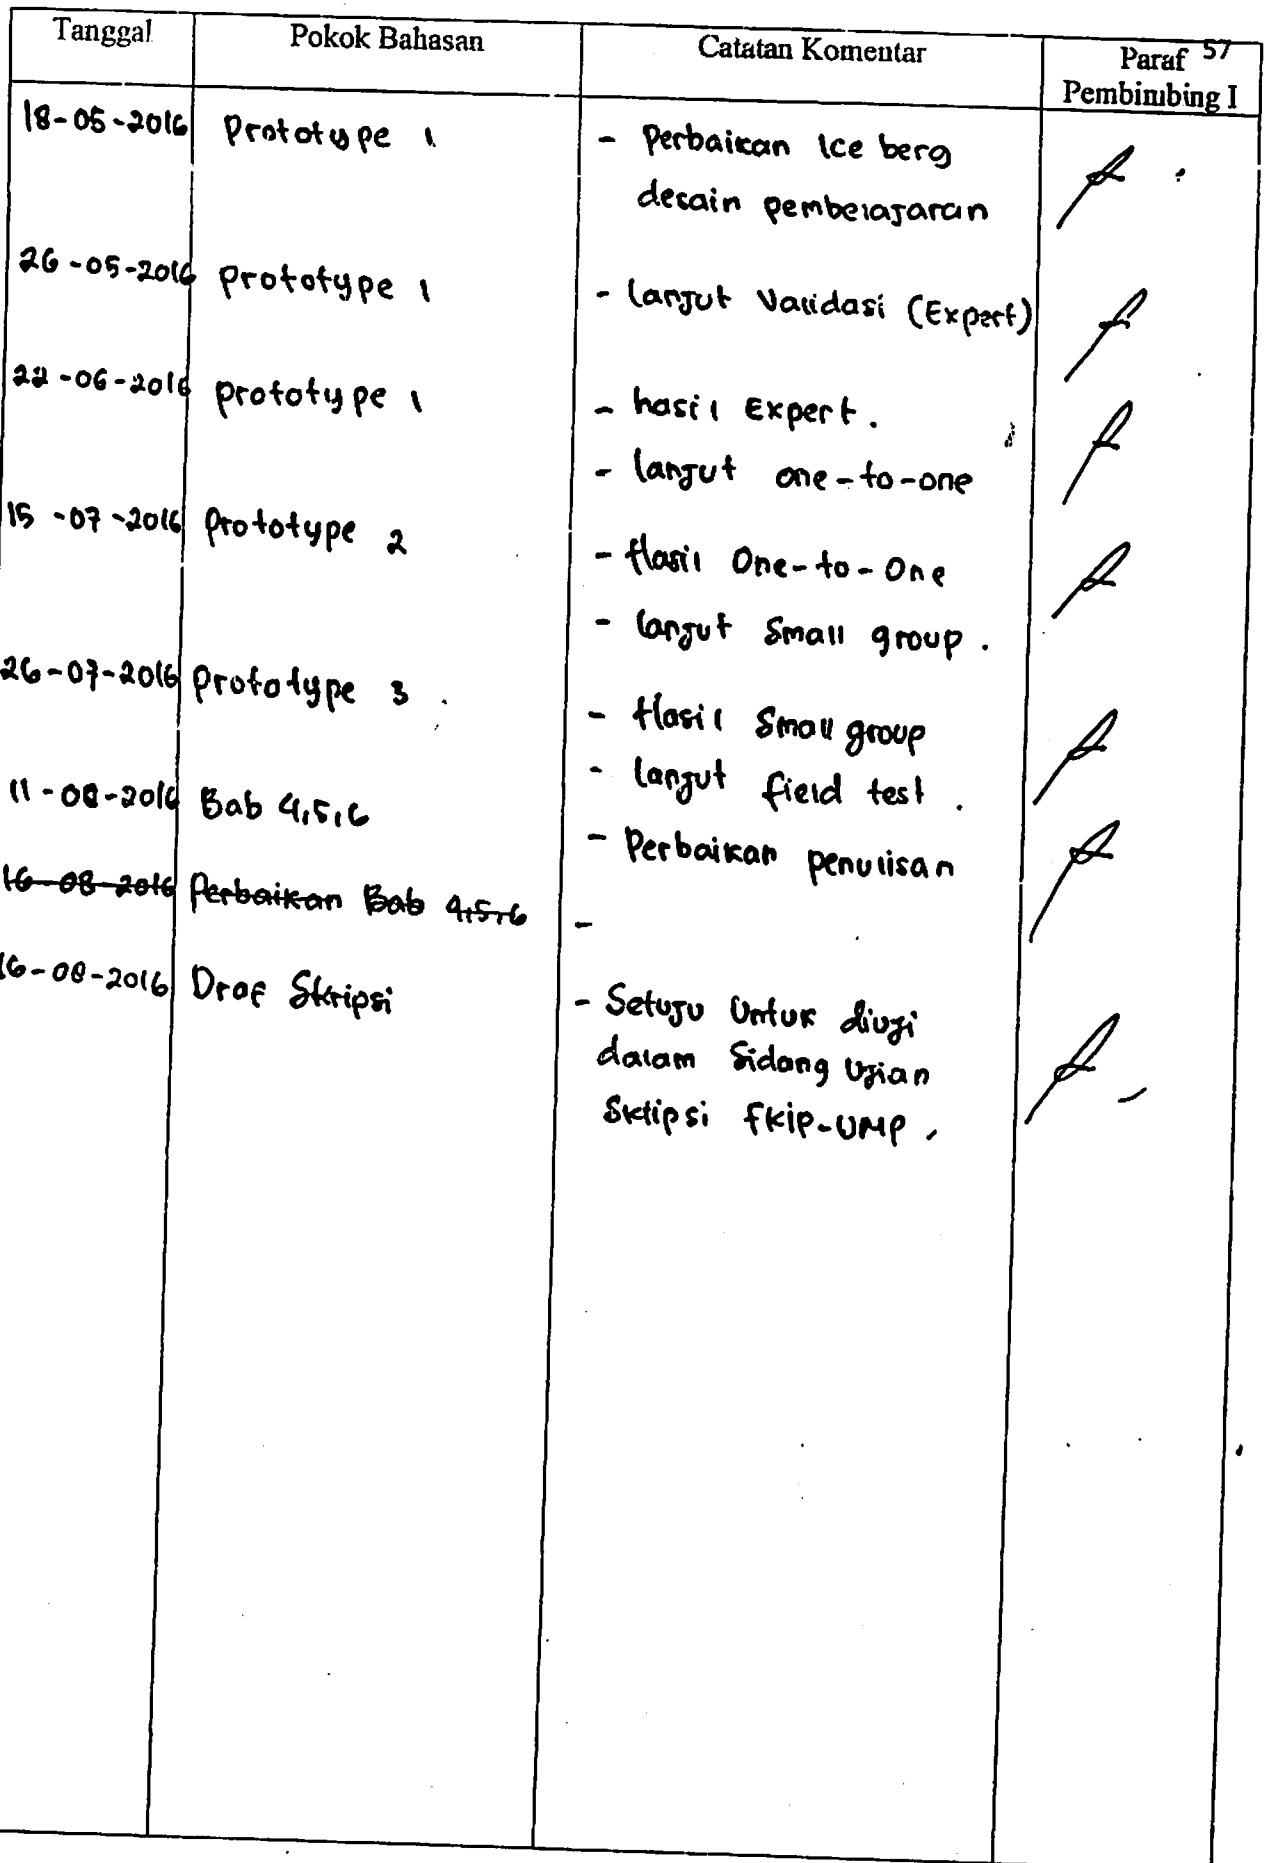 57
Tanggal Pokok Bahasan Catatan Komentar Paraf
Pembimbing I
18-05-2016 Prototype 1 - Perbaikan Ice berg
desain pembelajaran
26-05-2016 Prototype 1 - lanjut Validasi (Expert)
22-06-2016 Prototype 1 - hasil Expert.
- lanjut one-to-one
15-07-2016 Prototype 2 - Hasil One-to-One
- lanjut Small group.
26-07-2016 Prototype 3 - Hasil Small group
- lanjut field test.
11-08-2016 Bab 4,5,6 - Perbaikan penulisan
16-08-2016 Perbaikan Bab 4,5,6 -
16-08-2016 Draf Skripsi - Setuju Untuk diuji
dalam Sidang Ujian
Skripsi FKIP-UMP.